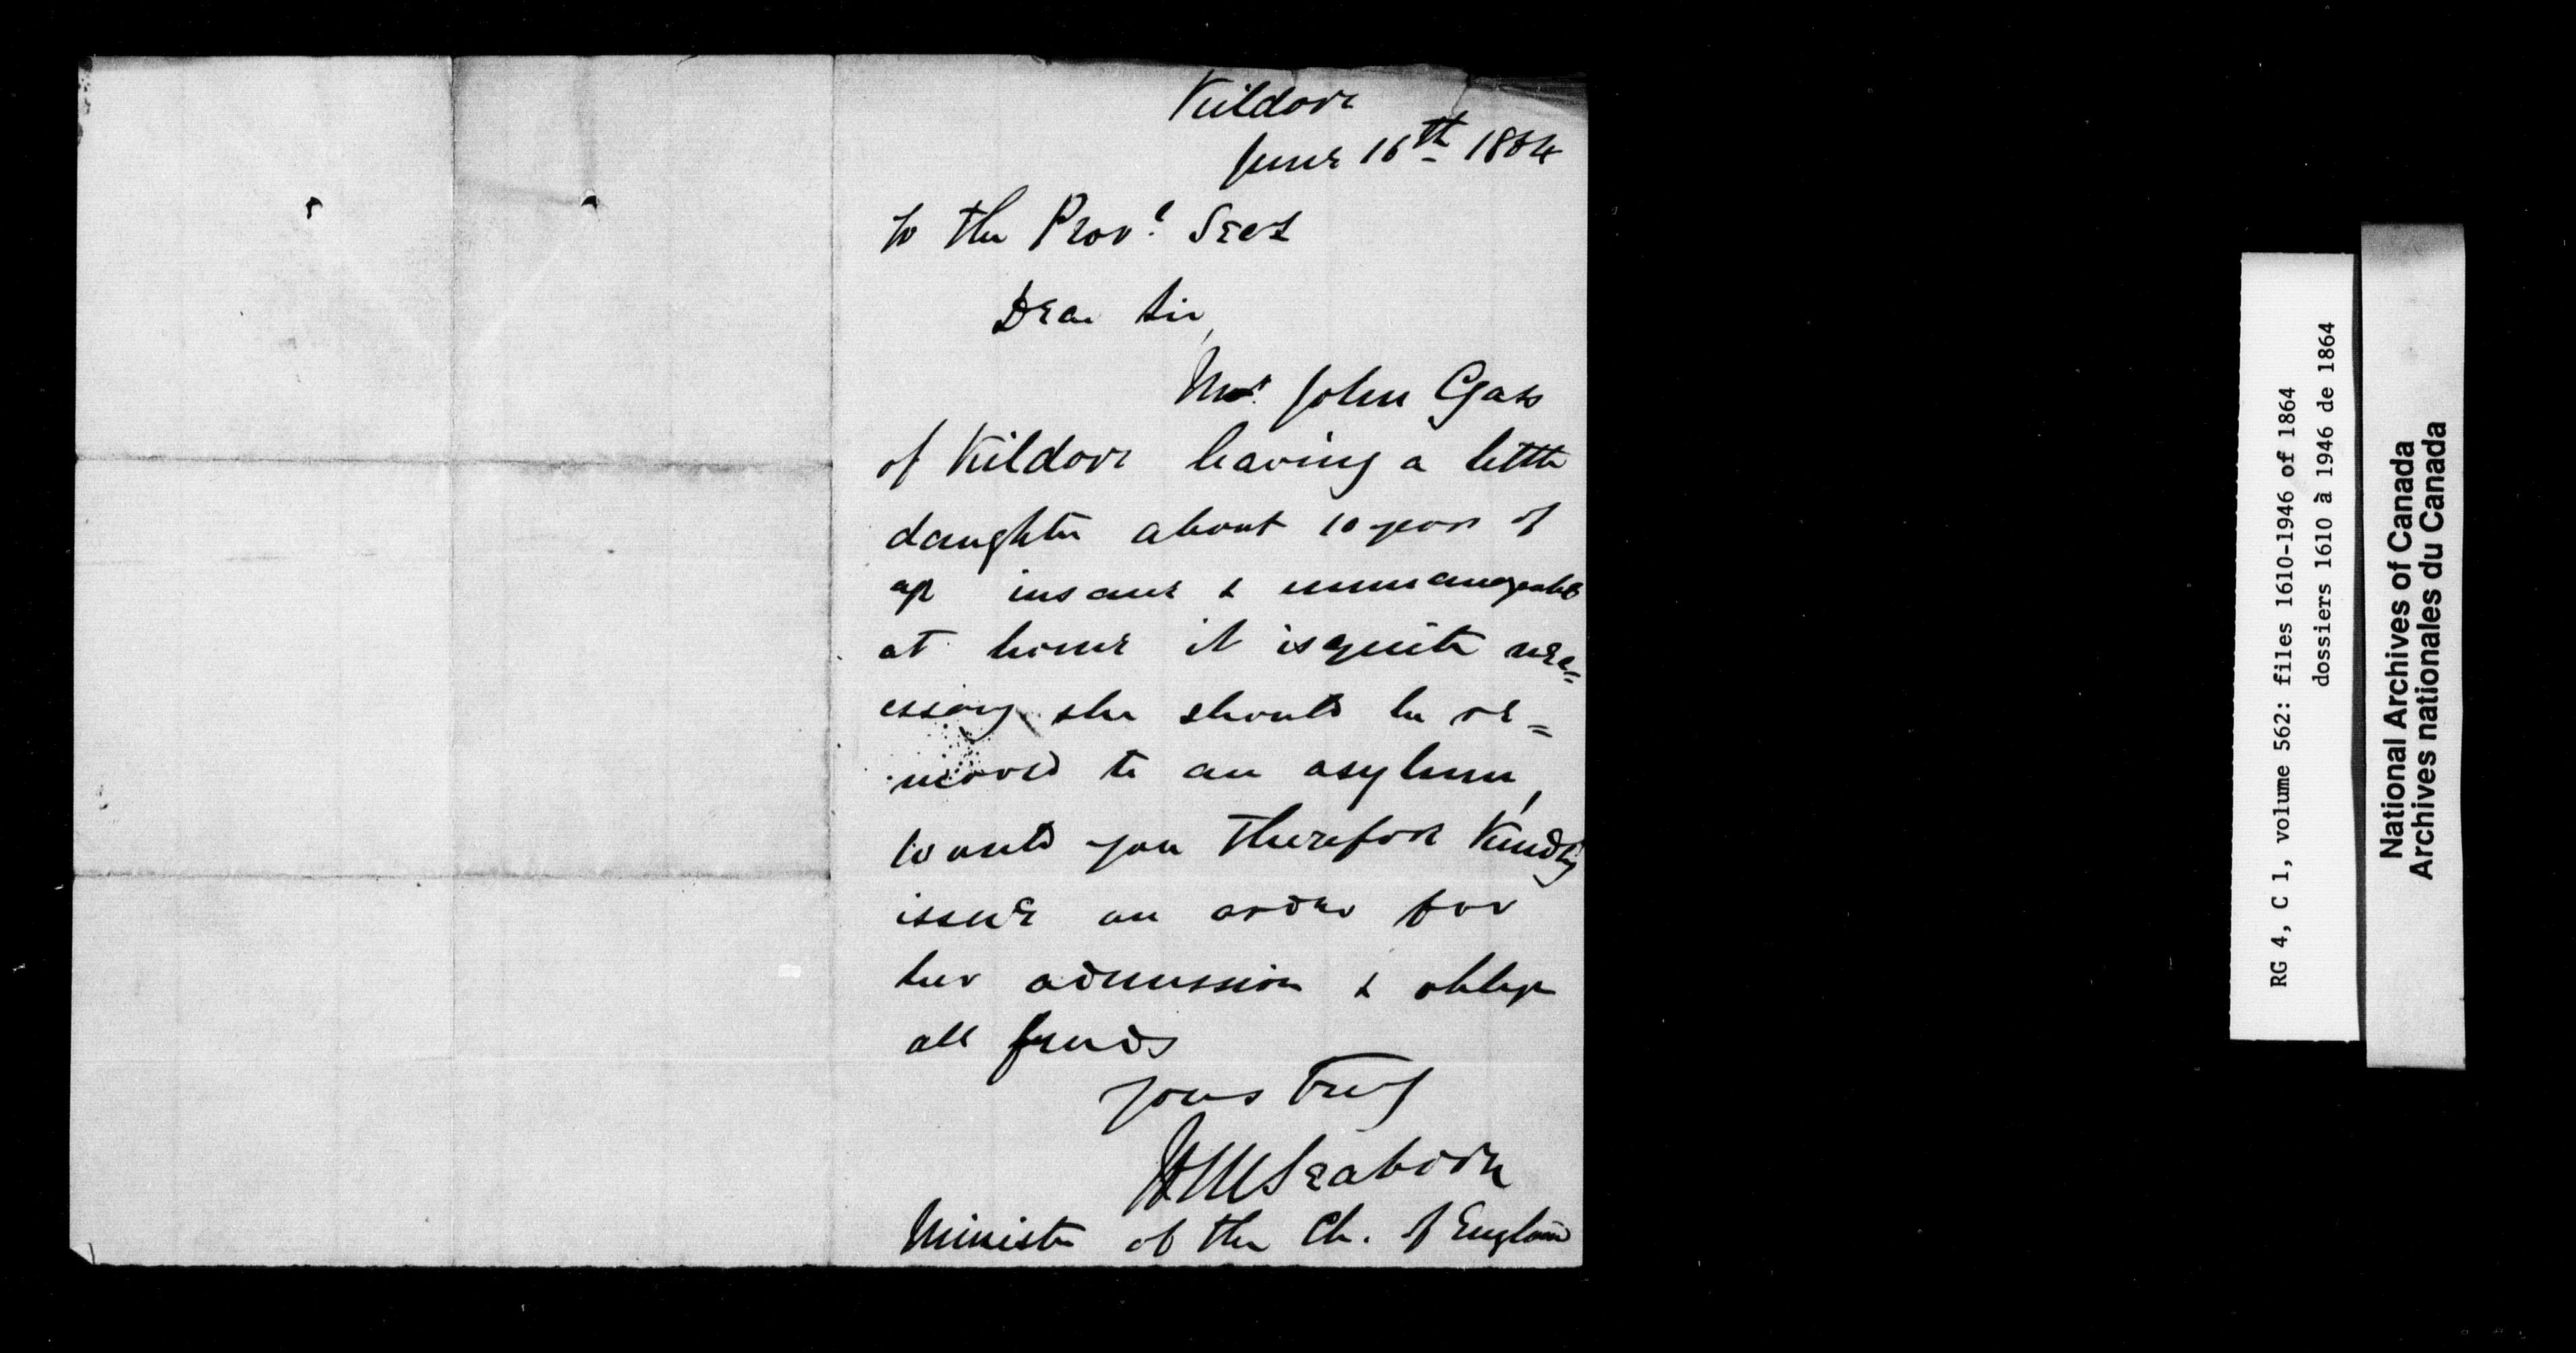 Kildare
June 16th 1864
To the Provl. Secy
Dear Sir,
Mrs. John Gass
of Kildare having a little
daughter about 10 years of
age insane & unmanageable
at home it is quite nec=
essary she should be re=
moved to an asylum,
would you therefore Kindly
issue an order for
her admission & oblige
all friends
Yours Truly
Seaborn
Minister of the Ch. of England
RG 4, C 1, volume 562: files 1610-1946 of 1864
dossiers 1610 à 1946 de 1864
National Archives of Canada
Archives nationales du Canada